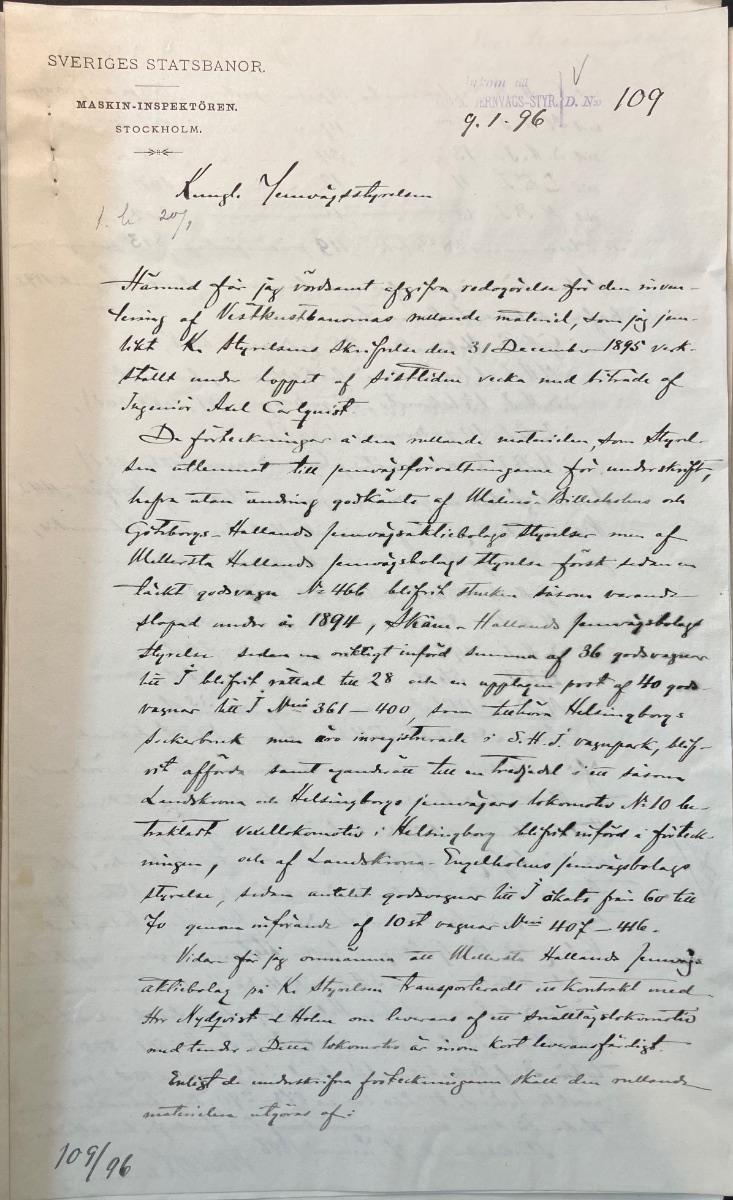 SVERIGES STATSBANOR.
MASKIN-INSPEKTÖREN.
STOCKHOLM.
Inkom till
JERNVÄGS-STYR. D. No 109
9.1.96
Kungl. Jernvägsstyrelsen
20/1
Härmed får jag vördsamt afgifva redogörelse för den inven-
tering af Vestkustbanornas rullande materiel, som jag jem-
likt K. Styrelsens skrifvelse den 31 December 1895 verk-
stält under loppet af sistliden vecka med biträde af
Ingeniör Axel Carlquist.
De förteckningar å den rullande materielen, som Styrel-
sen utlemnat till jernvägsförvaltningarne för underskrift,
hafva utan ändring godkänts af Malmö-Billesholms och
Göteborgs-Hallands Jernvägsaktiebolags styrelser men af
Mellersta Hallands Jernvägsbolags styrelse först sedan en
täckt godsvagn No 466 blifvit struken såsom varande
slopad under år 1894, Skåne-Hallands Jernvägsbolags
styrelse sedan en oriktigt införd summa af 36 godsvagnar
litt I blifvit rättad till 28 och en upptagen post af 40 gods-
vagnar litt I No 361-400, som tillhöra Helsingborgs
sockerbruk men äro inregistrerade i S.H.J. vagnpark, blif-
vit afförda samt eganderätt till en tredjedel i ett såsom
Landskrona och Helsingborgs jernvägars lokomotiv No 10 be-
traktadt vexellokomotiv i Helsingborg blifvit införd i förteck-
ningen, och af Landskrona-Engelholms Jernvägsbolags
styrelse, sedan antalet godsvagnar litt I ökats från 60 till
70 genom införande af 10 st vagnar No 407-416.
Vidare får jag omnämna att Mellersta Hallands Jernvägs-
aktiebolag på K. Styrelsen transporteradt ett kontrakt med
Hrr Nydqvist & Holm om leverans af ett snälltågslokomotiv
med tender. Detta lokomotiv är inom kort leveransfärdigt.
Enligt de underskrifna förteckningarna skall den rullande
materielen utgöras af:
109/96